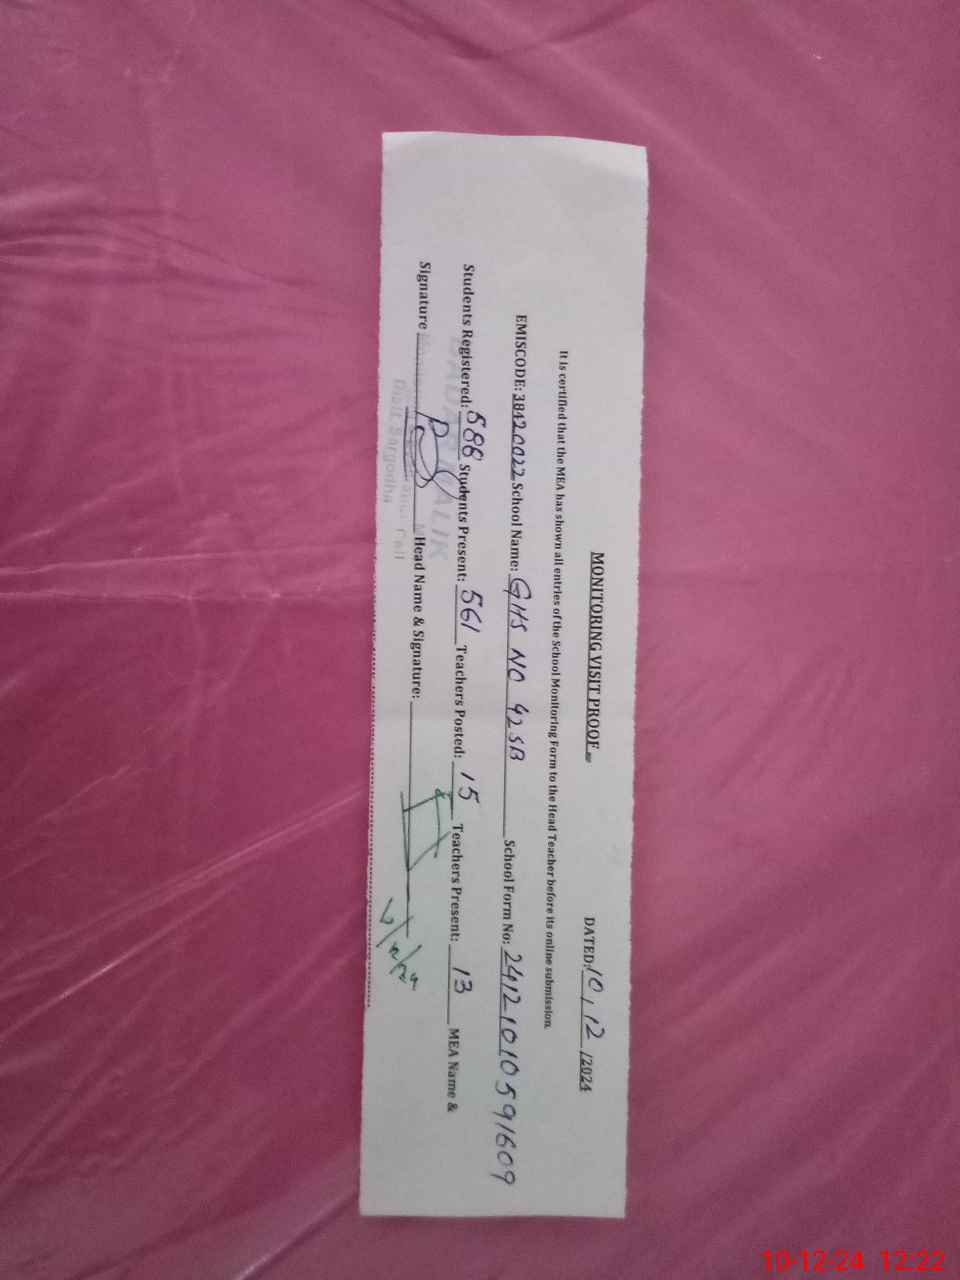 MONITORING VISIT PROOF
DATED: 10, 12 /2024
It is certified that the MEA has shown all entries of the School Monitoring Form to the Head Teacher before its online submission.
EMISCODE: 38420022 School Name: GHS NO 42 SB School Form No: 24121010591609
Students Registered: 588 Students Present: 561 Teachers Posted: 15 Teachers Present: 13 MEA Name &
Signature Head Name & Signature:
MALIK
Distt. Sargodha
10-12-24 12:22